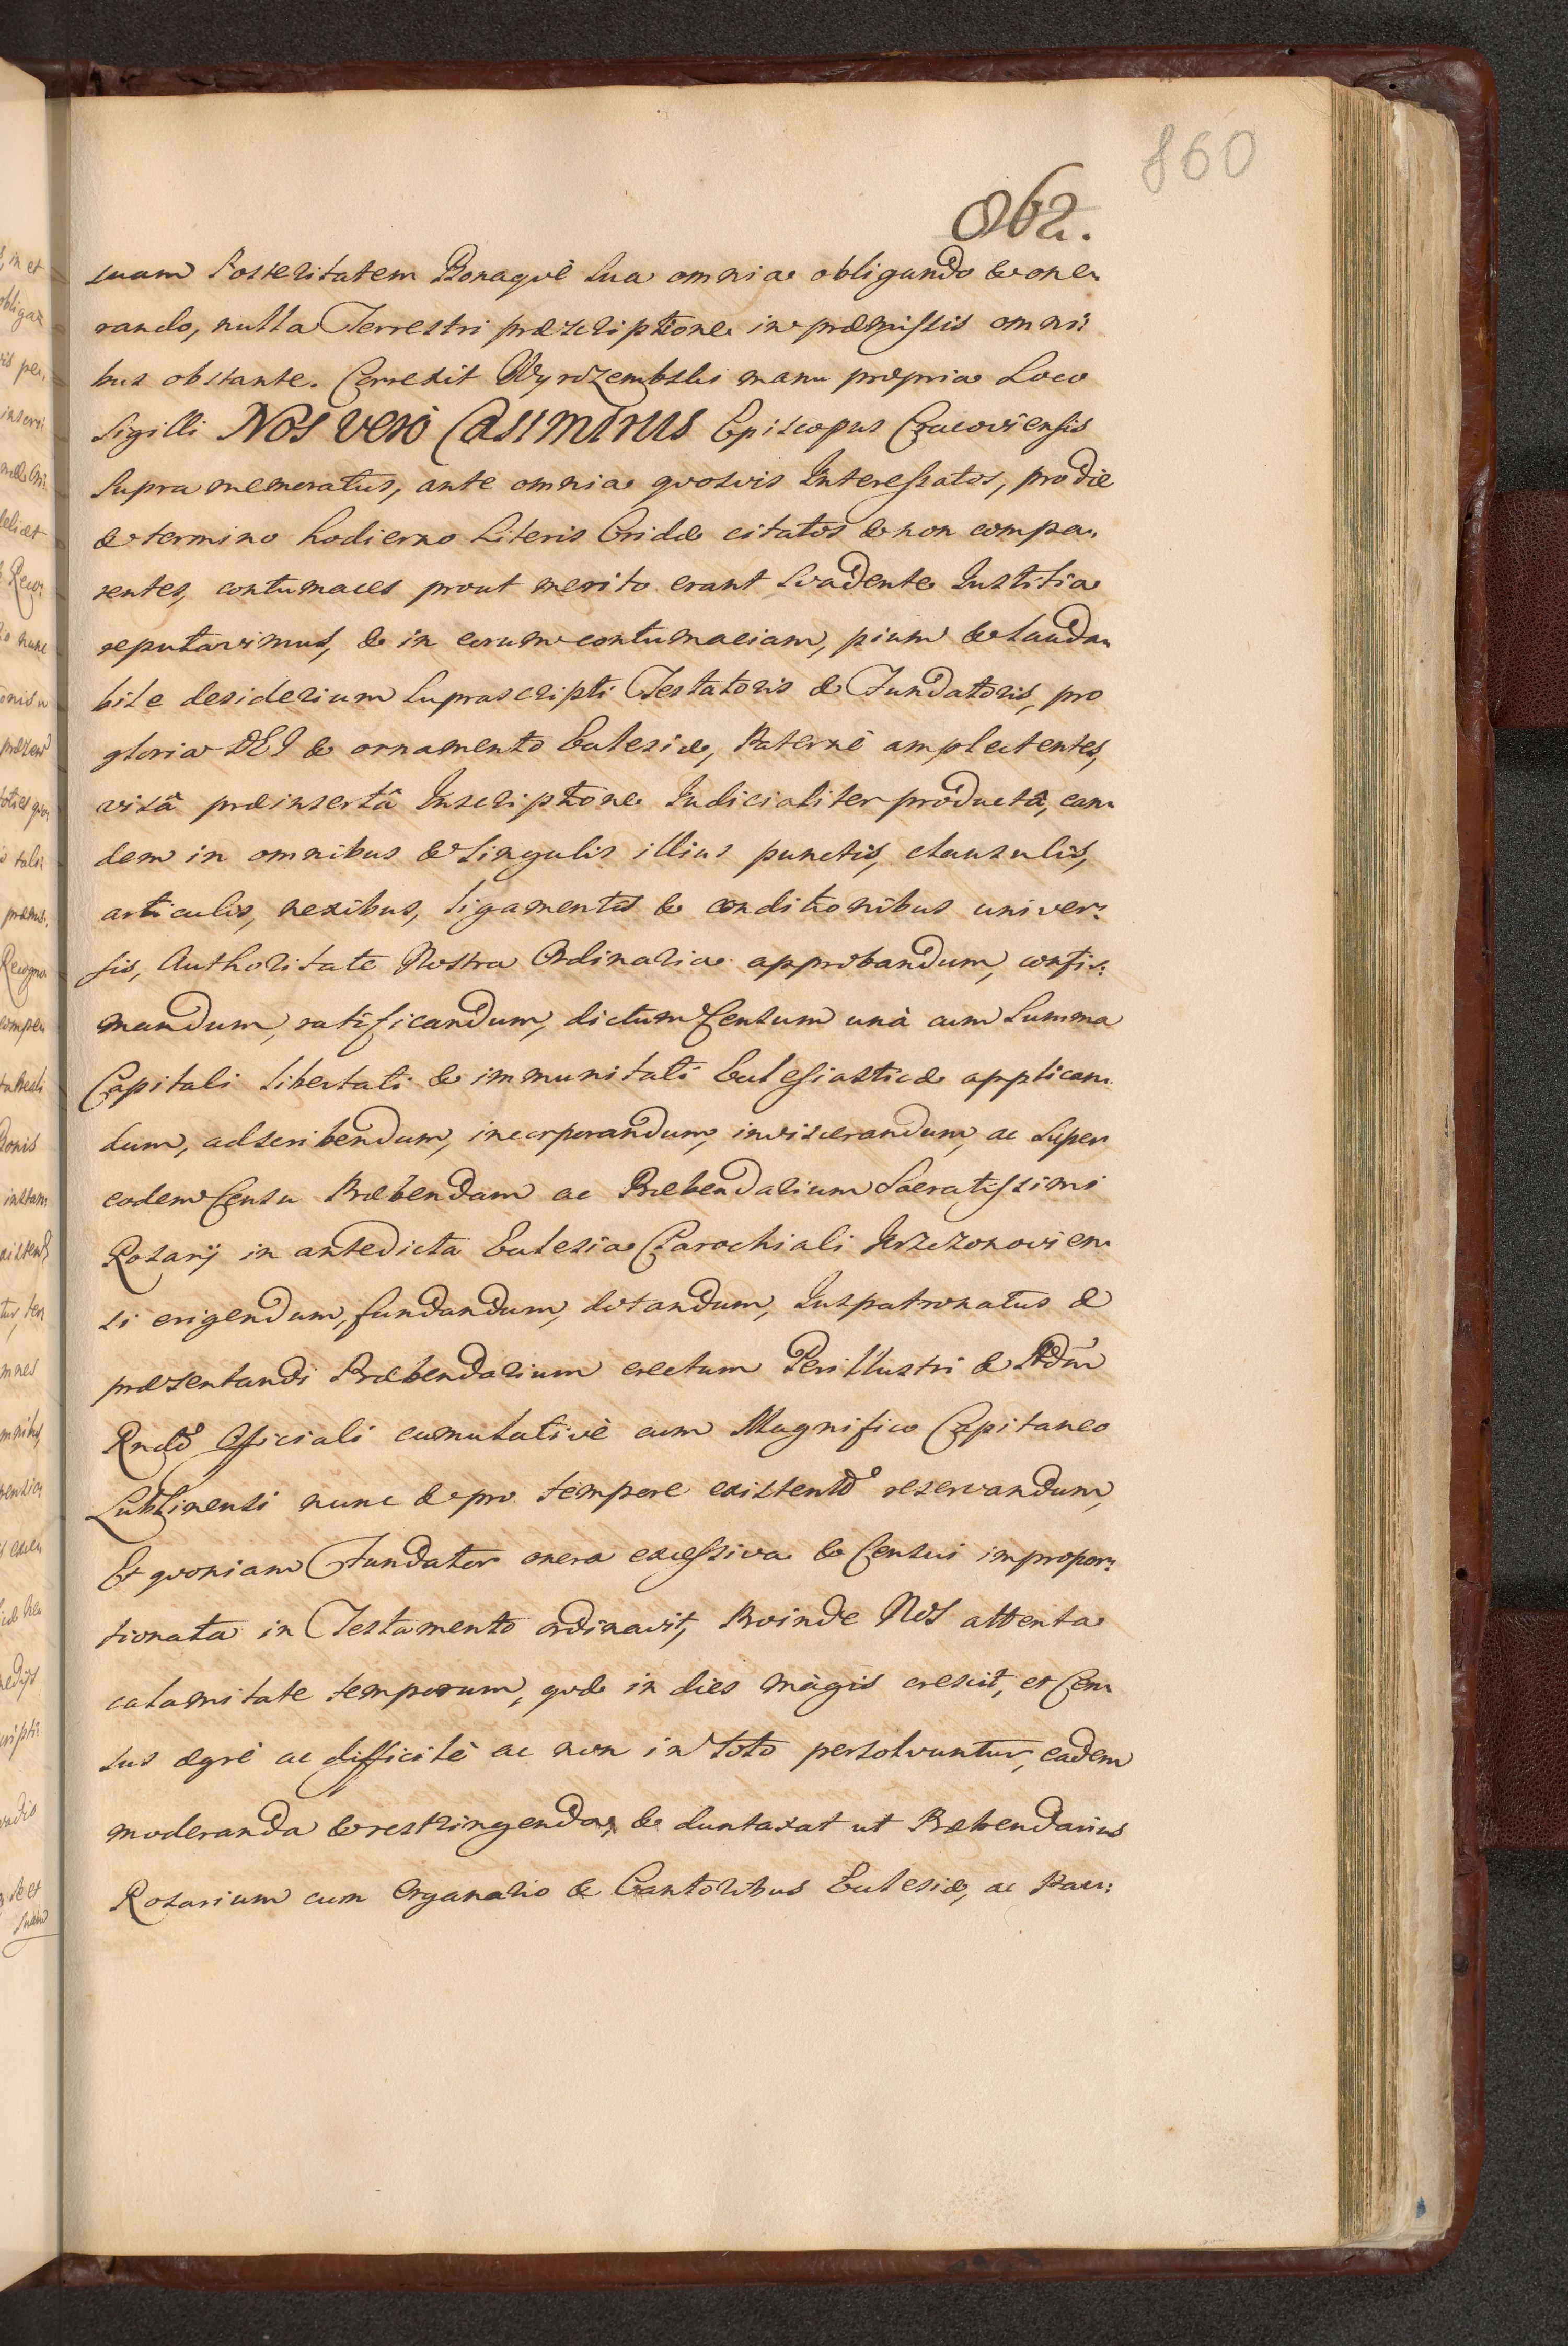 860
862.
suam Posteritatem Bonaqvè sua omnia obligando & one-
rando, nulla Terrestri præscriptione in præmissis omni:
bus obstante. Correxit Wyrozembski manu propria Loco
Sigilli Nos verò Casimirus Episcopus Cracoviensis
supra memoratus, ante omnia qvosvis Interessatos, pro die
& termino hodierno Literis Cridæ citatos & non compa-
rentes, contumaces prout merito erant svadente Iustitia
reputavimus, & in eorum contumaciam, pium & lauda-
bile desiderium suprascripti Testatoris & Fundatoris, pro
gloria DEI & ornamento Eclesiæ, Paternè amplectentes,
visâ præinsertâ Inscriptione Iudicialiter productâ, ean-
dem in omnibus & singulis illius punctis, clausulis,
articulis, nexibus, ligamentis & conditionibus univer:
sis, Authoritate Nostra Ordinaria approbandum, confir:
mandum, ratificandum, dictum Censum unà cum Summa
Capitali libertati & immunitati Eclesiasticæ applican-
dum, adscribendum, incorporandum, inviscerandum, ac super
eodem Censu Præbendam ac Præbendarium Sacratissimi
Rosarij in antedicta Eclesia Parochiali Krzczonovien-
si erigendum, fundandum, dotandum, Iuspatronatus &
præsentandi Præbendarium erectum Perillustri & Adm̃
Rndo Officiali cumulativè cum Magnifico Capitaneo
Lublinensi nunc & pro tempore existente reservandum,
Et qvoniam Fundator onera excessiva & Censui impropor:
tionata in Testamento ordinavit, Proinde Nos attenta
calamitate temporum, qvæ in dies magis crescit, et Cen-
sus ægrè ac difficilè ac non in toto persolvuntur, eadem
moderanda & restringenda, & duntaxat ut Præbendarius
Rosarium cum Organario & Cantoribus Eclesiæ, ac Pau: